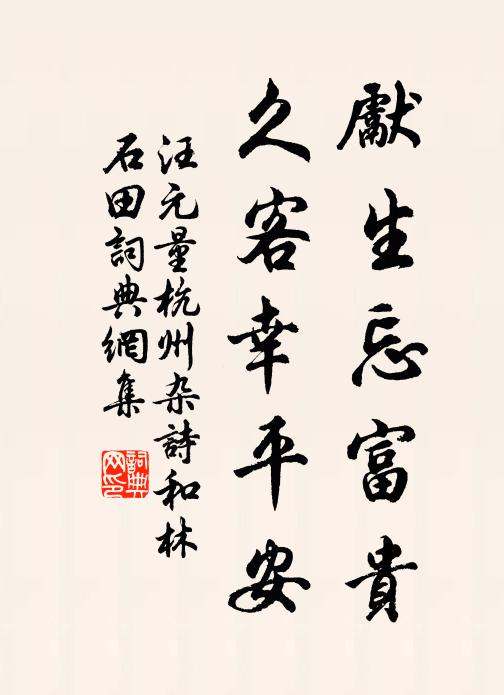 獻生忘富貴
久客幸平安
汪元量杭州杂詩和林
石田詞典網集
詞典
网印